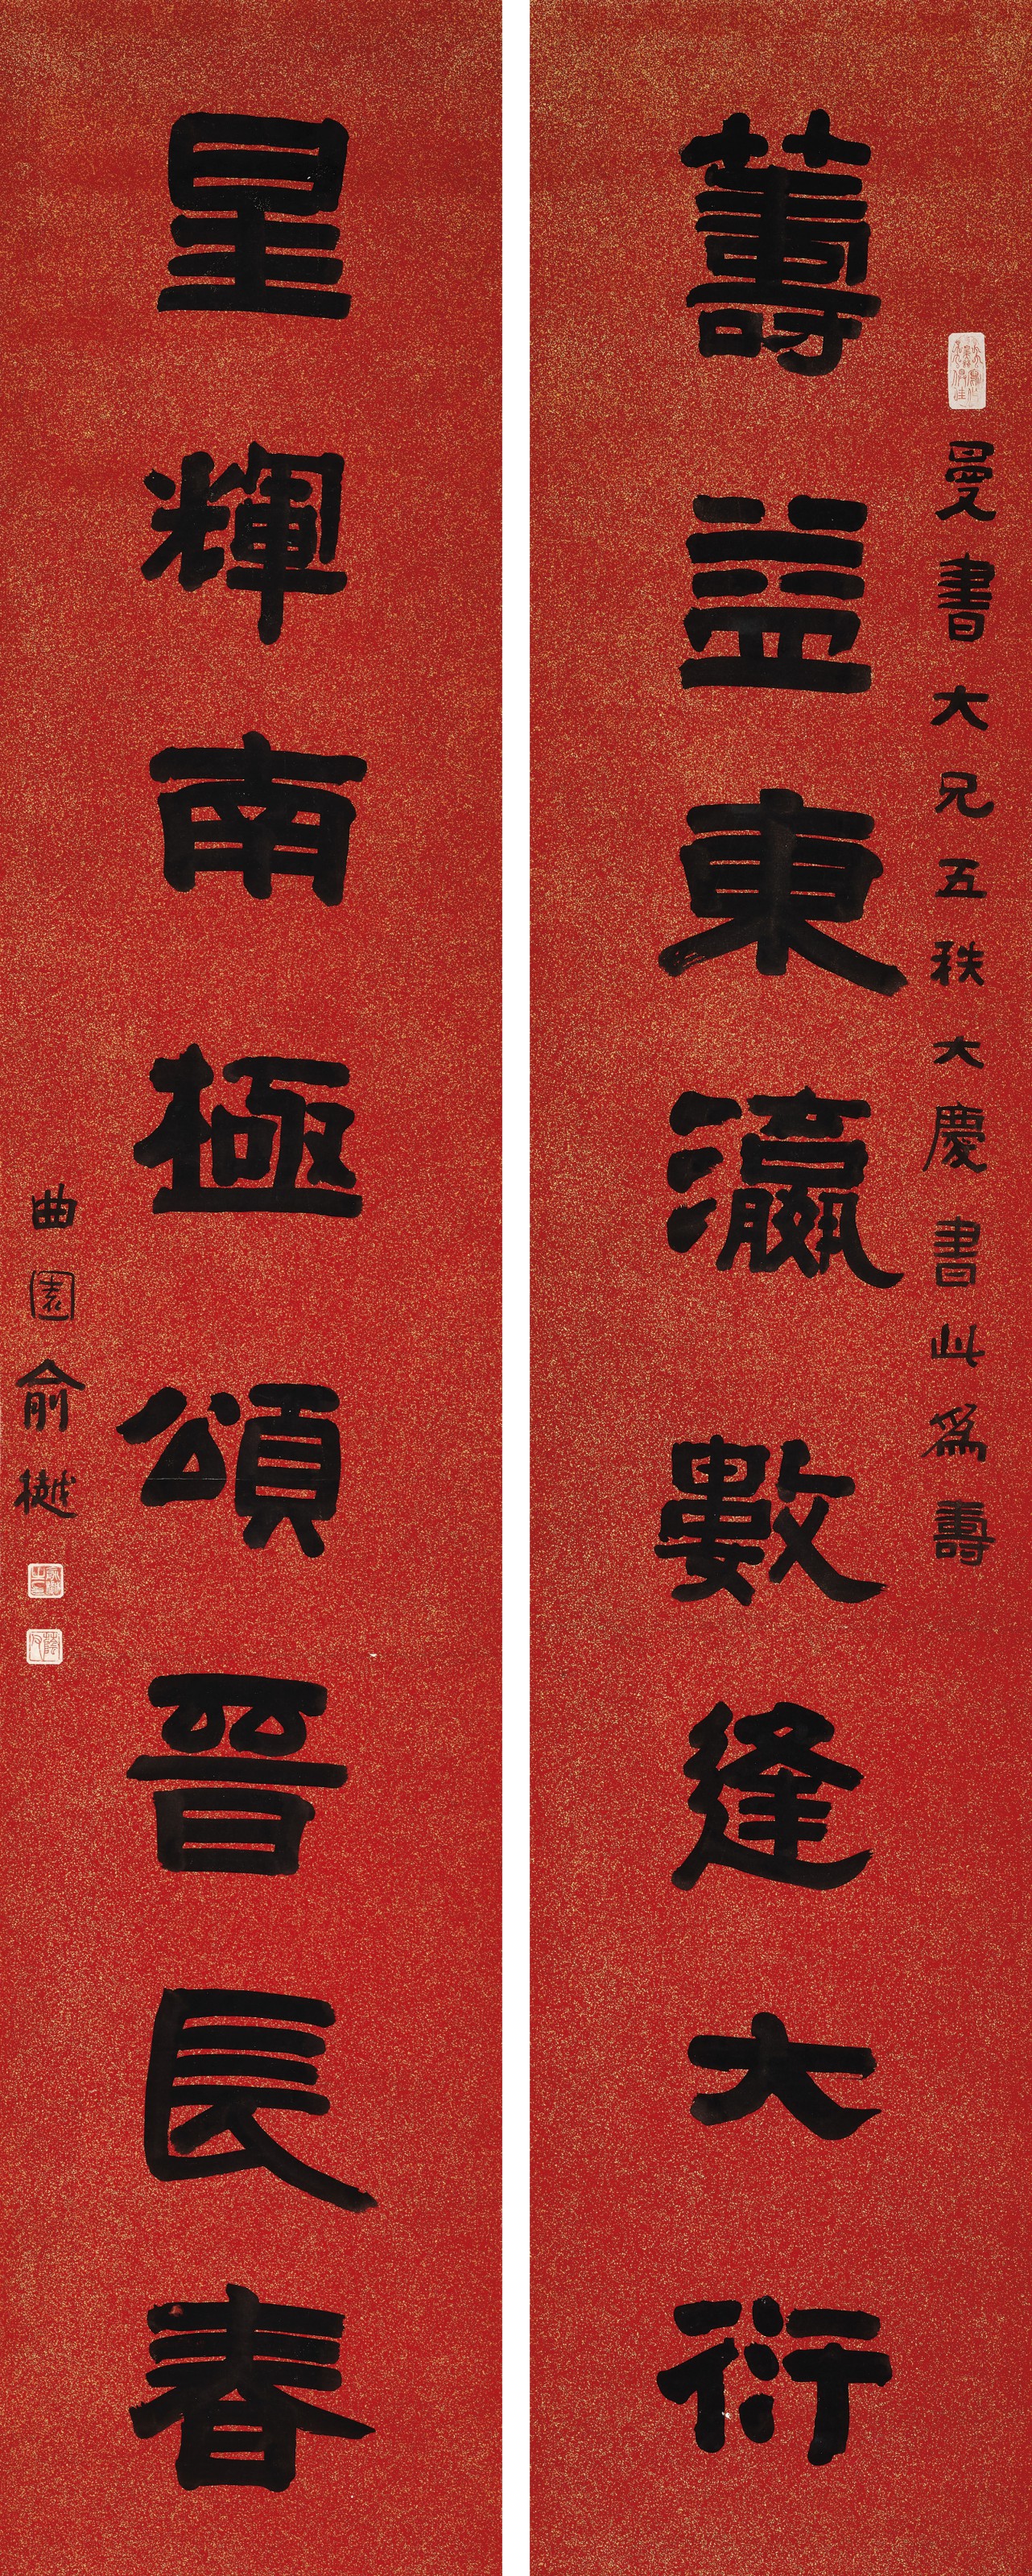 曼書大兄五秩大慶書此為壽
籌益東瀛數逢大衍
星輝南極頌晉長春
曲園俞樾